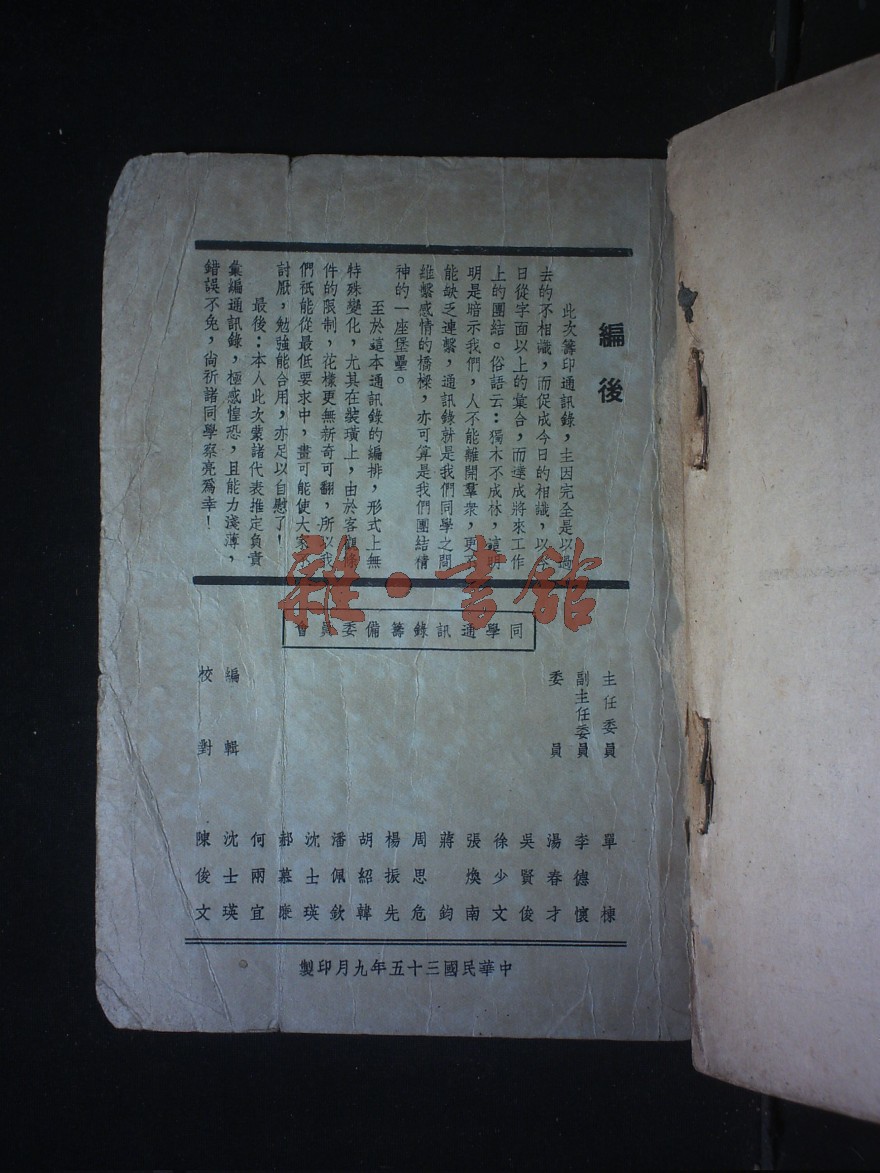 編後
此次籌印通訊錄，主因完全是以過
去的不相識，而促成今日的相識，以今
日從字面以上的彙合，而達成將來工作
上的團結。俗語云：獨木不成林，這明
明是暗示我們，人不能離開羣衆，更不
能缺乏連繫，通訊錄就是我們同學之間
維繫感情的橋樑，亦可算是我們團結精
神的一座堡壘。
至於這本通訊錄的編排，形式上無
特殊變化，尤其在裝璜上，由於客觀條
件的限制，花樣更無新奇可翻，所以我
們祇能從最低要求中，盡可能使大家不
討厭，勉強能合用，亦足以自慰了！
最後：本人此次蒙諸代表推定負責
彙編通訊錄，極感惶恐，且能力淺薄，
錯誤不免，尙祈諸同學察亮爲幸！
雜·書館
同學通訊錄籌備委員會
主任委員 單棟
副主任委員 李德懷
委員 湯春才
吳賢俊
徐少文
張煥南
蔣鈞
周思危
楊振先
胡紹韓
潘佩欽
沈士瑛
郝慕
何兩宜
編輯 沈士瑛
校對 陳俊文
中華民國三十五年九月印製